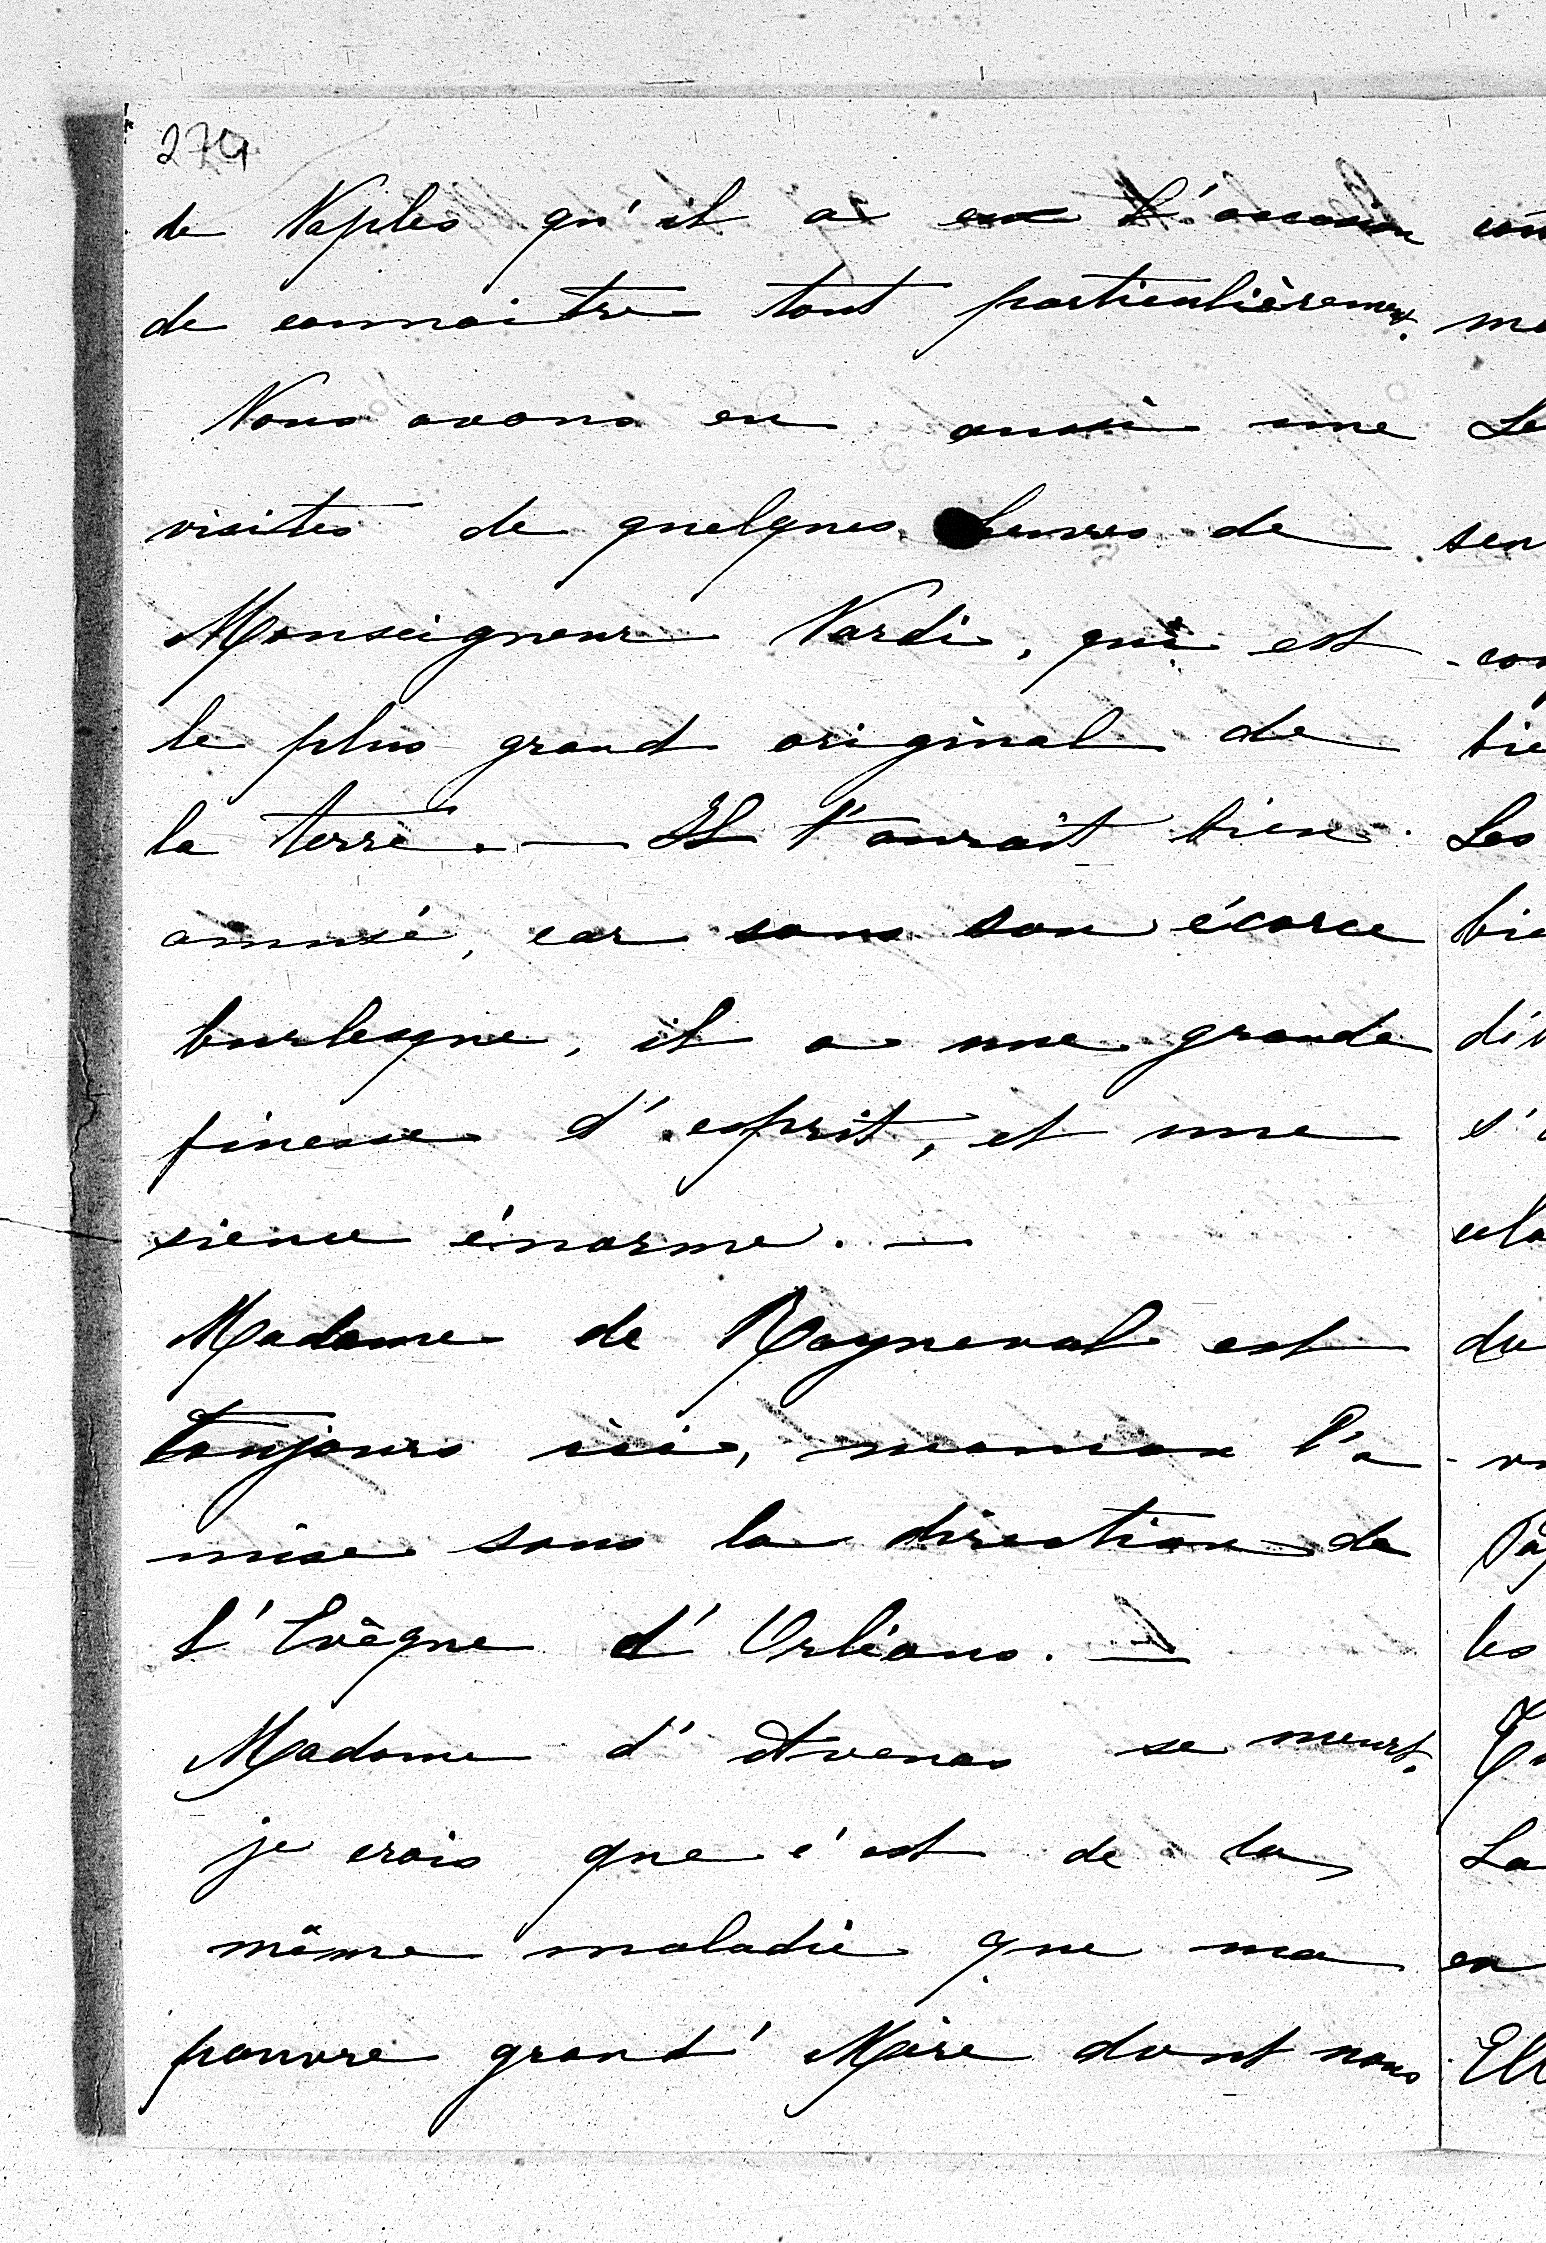 279
de Naples qu'il a eu l'occasion
de connaitre tout particulièrement.
Nous avons eu aussi une
visites de quelques heures de
Monseigneur Nardi, qui est
le plus grand original de
la terre. — Il t'aurait bien
amusé, car sous son écorce
burlesque, il a une grande
finesse d'esprit, et une
sience énorme. —
Madame de Rayneval est
toujours ici, maman l'a
mise sous la direction de
l'Evêque d'Orléans. —
Madame d'Avenas se meurt.
je crois que c'est de la
même maladie que ma
pauvre grand' Mère dont nous
me
Le
Les
du
les
La
en